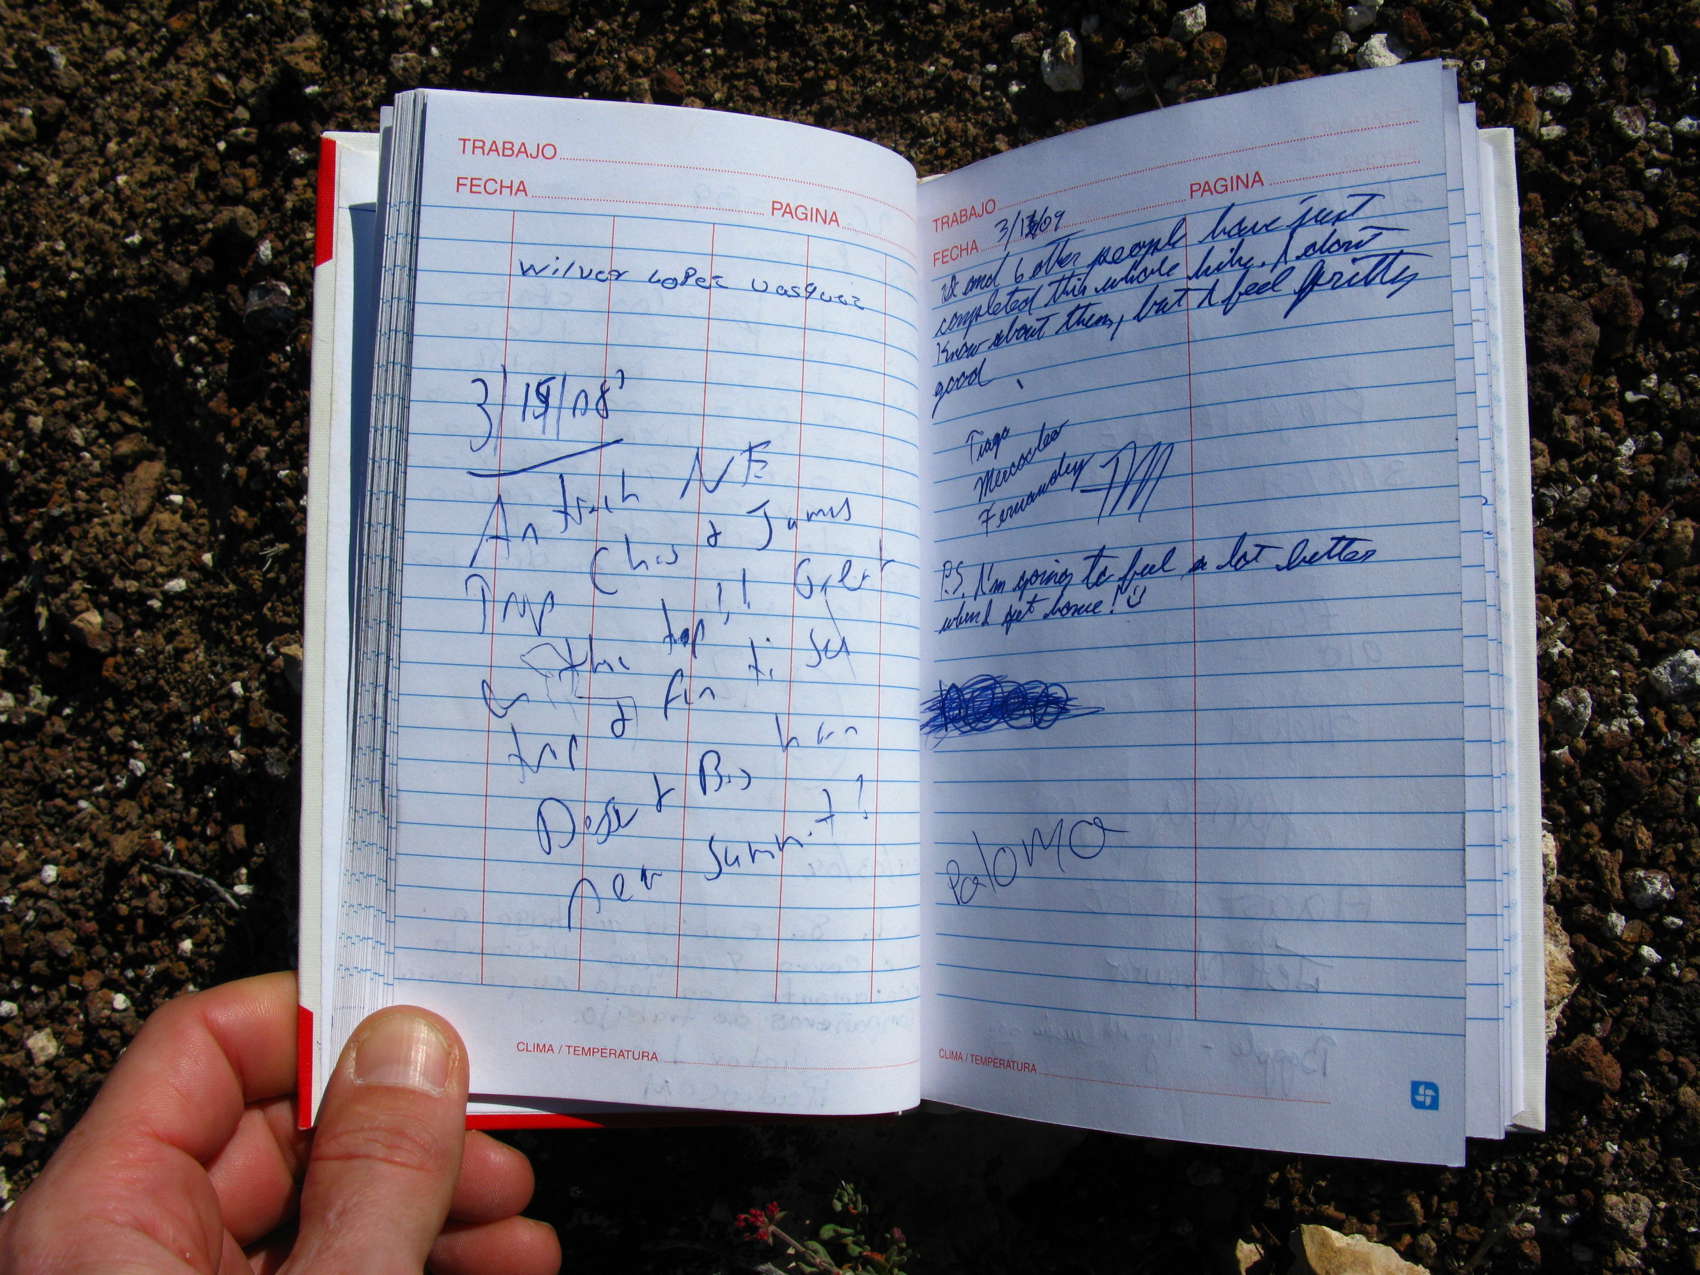 TRABAJO
FECHA
PAGINA
wilver Lopez vasquez
3/15/08
Antioch NE
Trip Chris & James
the top!! Great
trip & fun
Desert Bighorn
near summit!
CLIMA / TEMPERATURA
TRABAJO
PAGINA
FECHA 3/13/09
and 6 other people have just
completed this whole hike. I don't
know about them, but I feel pritty
good.
Tiago
Mercocles
Fernandez TM
P.S. I'm going to feel a lot better
when I get home!
Palomo
CLIMA / TEMPERATURA